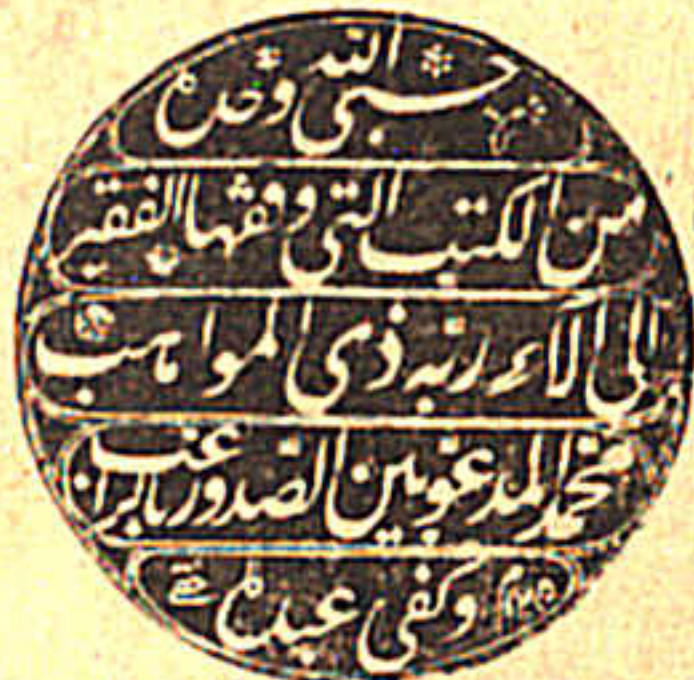 حسبي الله وحده
من الكتب التي وقفها الفقير
إلى آلاء ربه ذي المواهب
محمد المدعو بين الصدور بالراغب
وكفى عبده